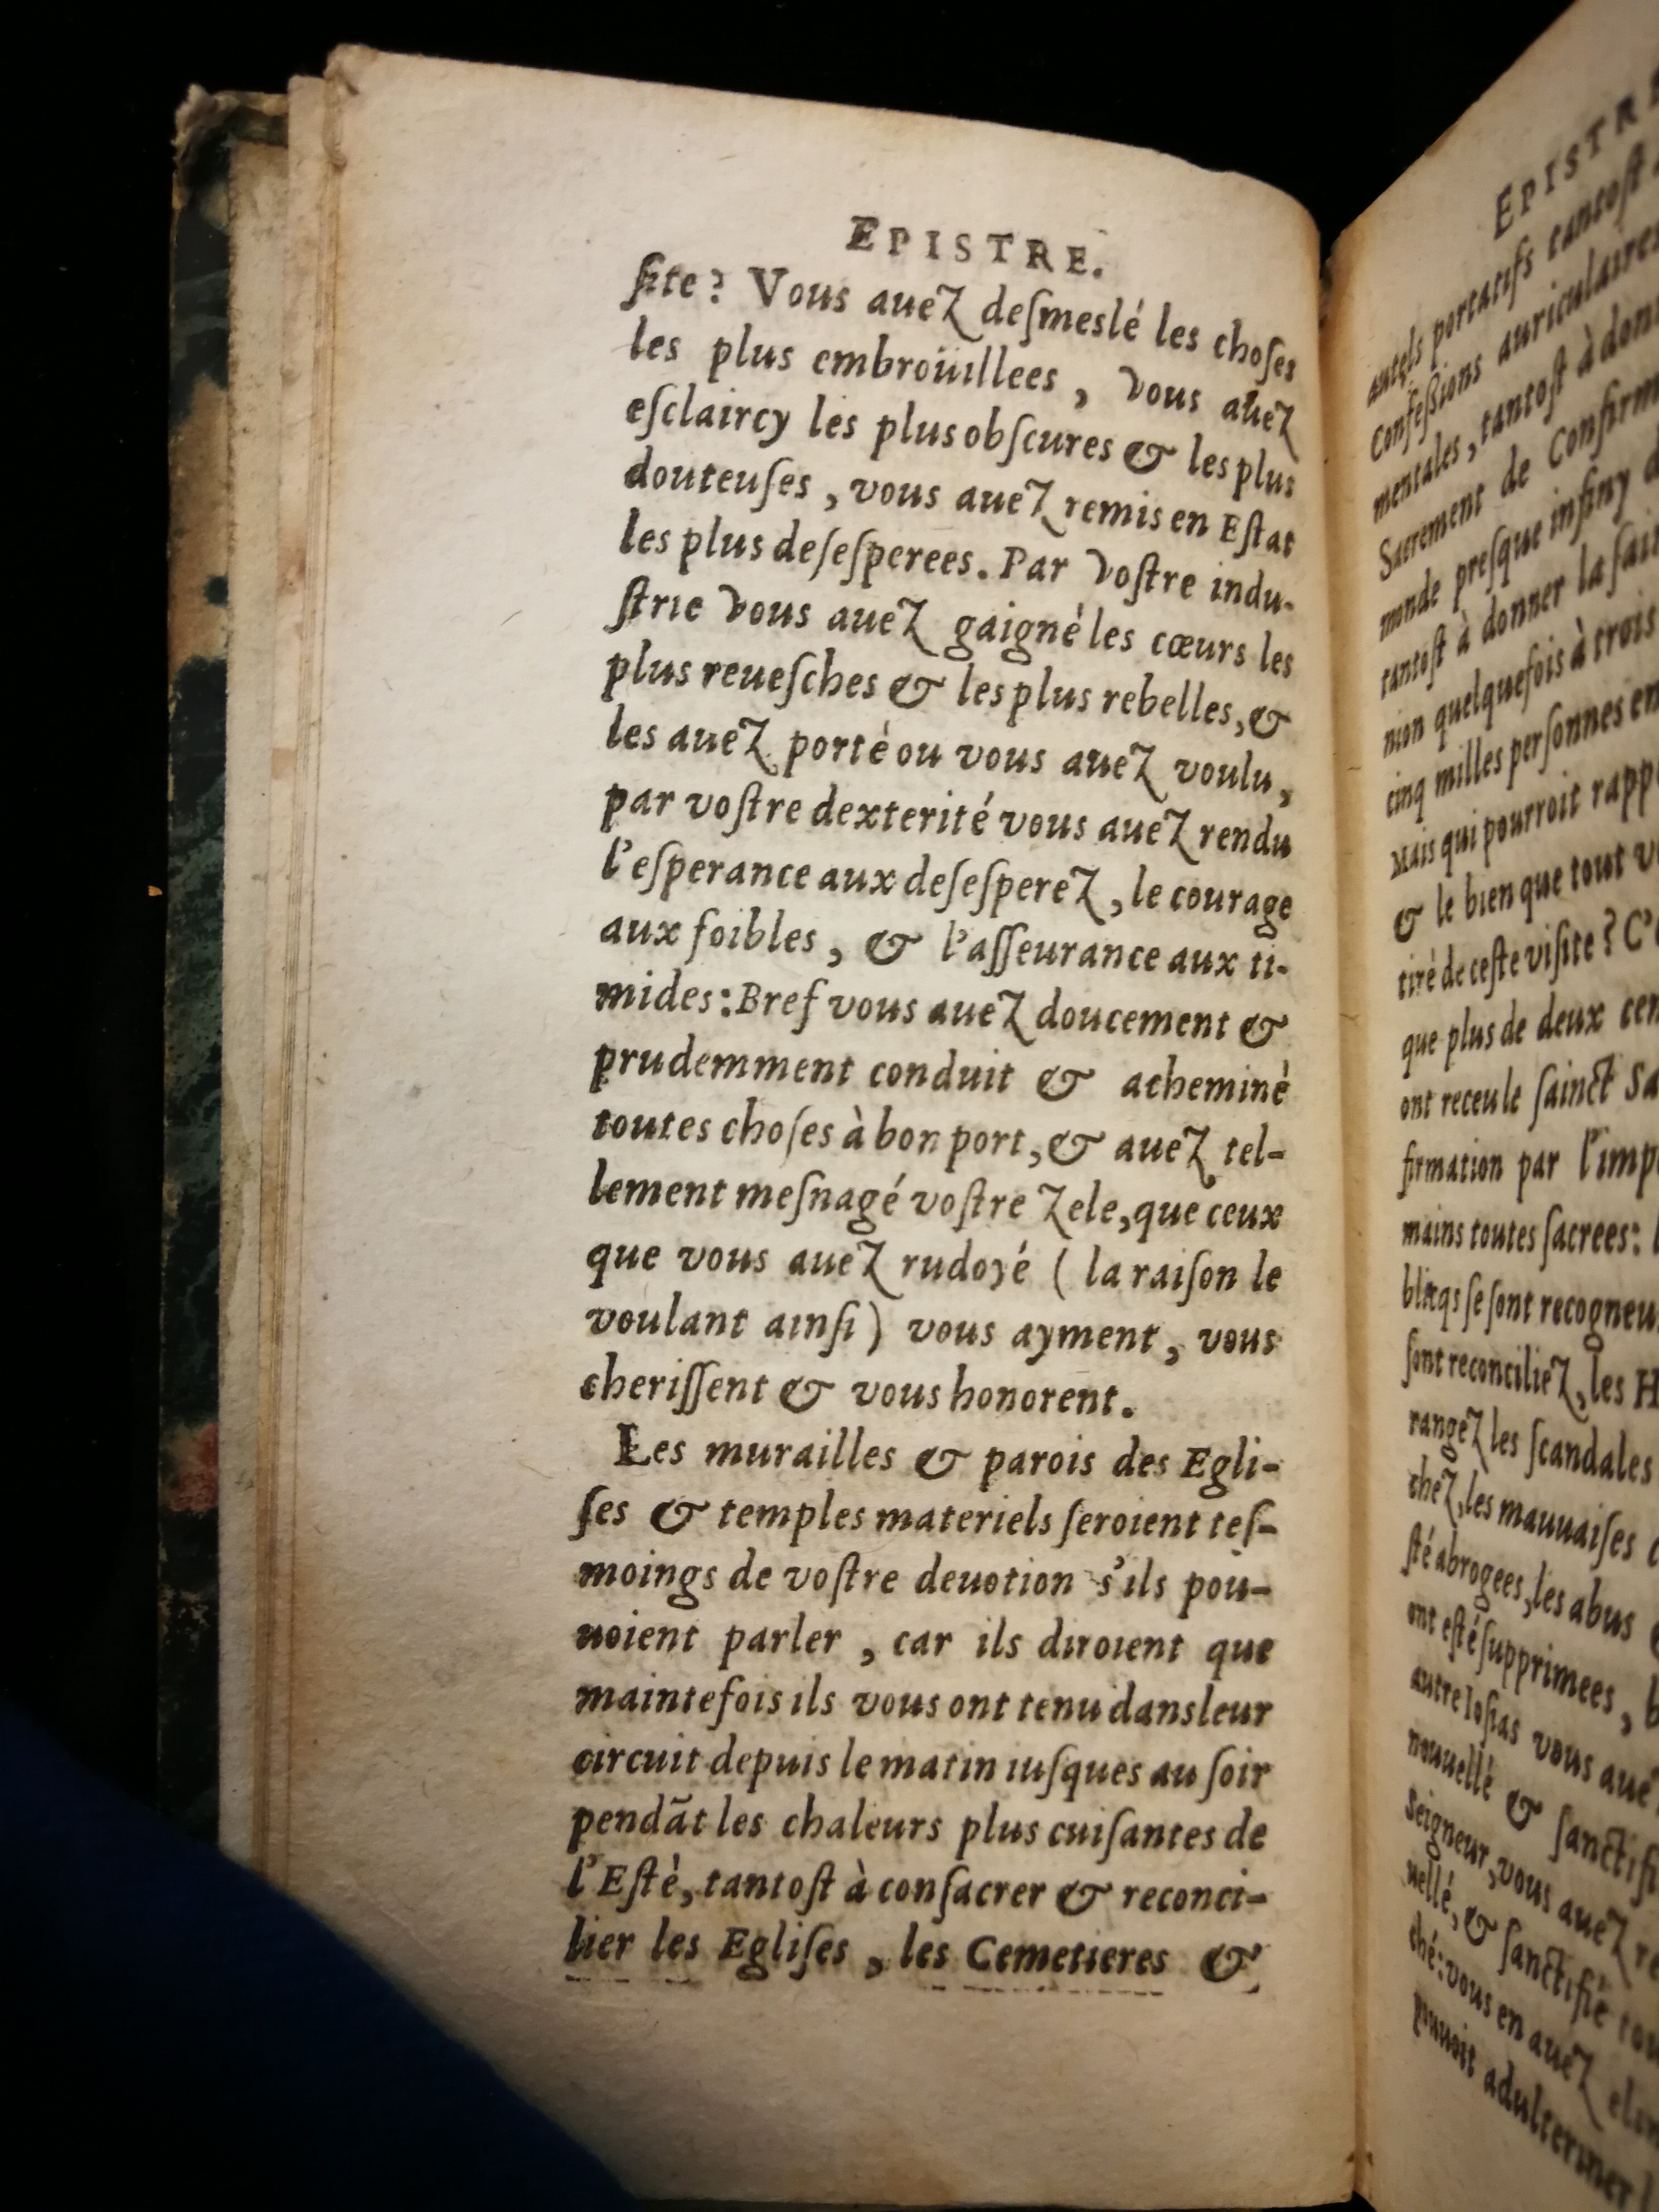 EPISTRE.
ſite? Vous aueZ deſmeslé les choſes
les plus embroüillees, vous aueZ
eſclaircy les plus obſcures & les plus
douteuſes, vous aueZ remis en Eſtat
les plus deſeſperees. Par voſtre indu-
ſtrie vous aueZ gaigné les cœurs les
plus reueſches & les plus rebelles, &
les aueZ porté ou vous aueZ voulu,
par voſtre dexterité vous aueZ rendu
l'eſperance aux deſeſpereZ, le courage
aux foibles, & l'aſſeurance aux ti-
mides: Bref vous aueZ doucement &
prudemment conduit & acheminé
toutes choſes à bon port, & aueZ tel-
lement meſnagé voſtre Zele, que ceux
que vous aueZ rudoyé ( la raiſon le
voulant ainſi ) vous ayment, vous
cheriſſent & vous honorent.
Les murailles & parois des Egli-
ſes & temples materiels ſeroient teſ-
moings de voſtre deuotion s'ils pou-
uoient parler, car ils diroient que
maintefois ils vous ont tenu dans leur
circuit depuis le matin iuſques au ſoir
pendāt les chaleurs plus cuiſantes de
l'Eſté, tantoſt à conſacrer & reconci-
lier les Egliſes, les Cemetieres &
EPISTRE
autels portatifs tantoſt
Confeſſions auriculaires
mentales, tantoſt à
Sacrement de
monde preſque infiny
tantoſt à donner la
nion quelquefois à trois
cinq milles perſonnes
Mais qui pourroit
& le bien que tout
tiré de ceſte viſite?
que plus de deux
ont receu le ſainct
firmation par
mains toutes ſacrees:
ſe ſont
ſont reconcilieZ, les
rangeZ les ſcandales
cheZ, les mauuaiſes
ſté abrogees, les abus
ont eſté ſupprimees,
autre Ioſias vous
nouuellé &
Seigneur, vous aueZ
uellé, & ſanctifié
ché: vous en aueZ
pouuoit adulteriner